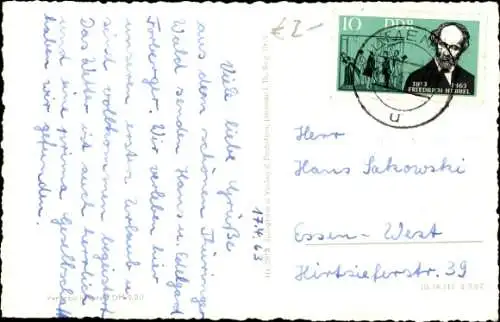 Viele liebe Grüße
aus dem schönen Thüringer
Wald senden Hans u. Edelgard
Wir verleben hier
unseren ersten Urlaub u.
sind vollkommen begeistert
Das Wetter ist auch herrlich
und eine prima Gesellschaft
haben wir gefunden.
17.4.63
€ 2-
10 DDR
1813 1863
FRIEDRICH HEBBEL
u
Herr
Hans Sakowski
Essen-West
Hirtsieferstr. 39